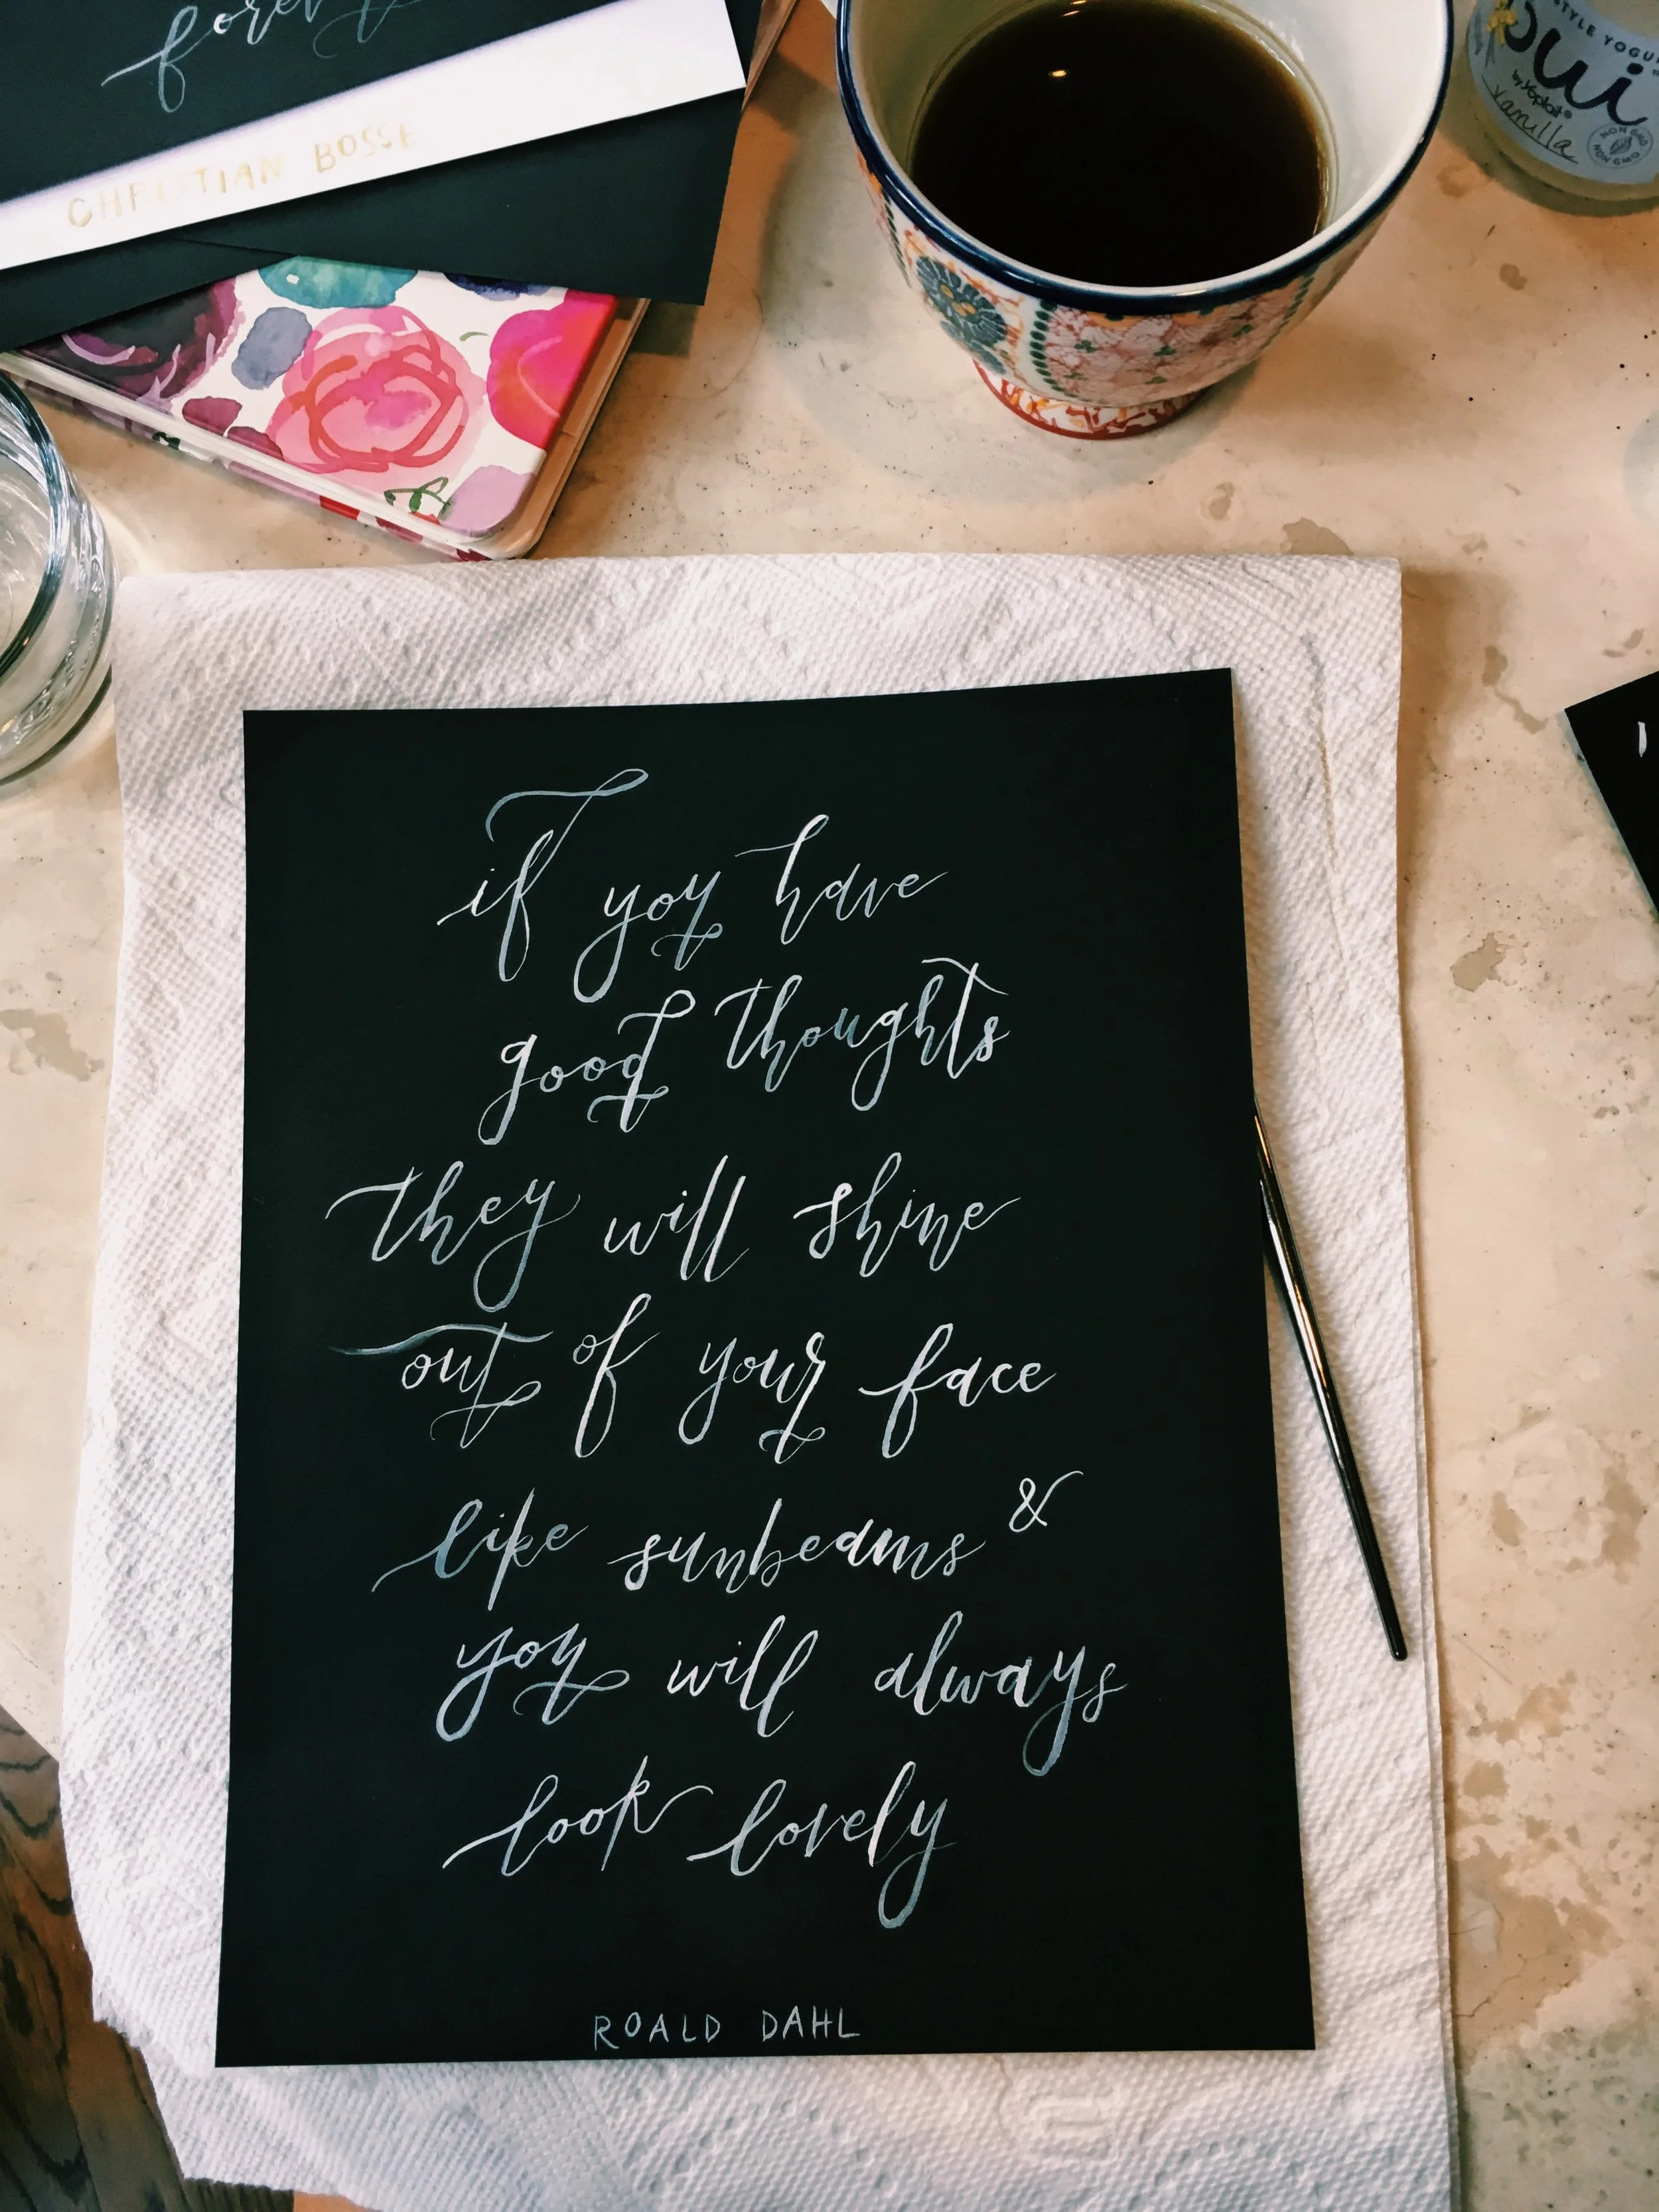 forev
CHRISTIAN BOSSE
STYLE YOGU
oui
by Yoplait®
vanilla
NON GMO
NON GMO
if you have
good thoughts
they will shine
out of your face
like sunbeams &
you will always
look lovely
ROALD DAHL